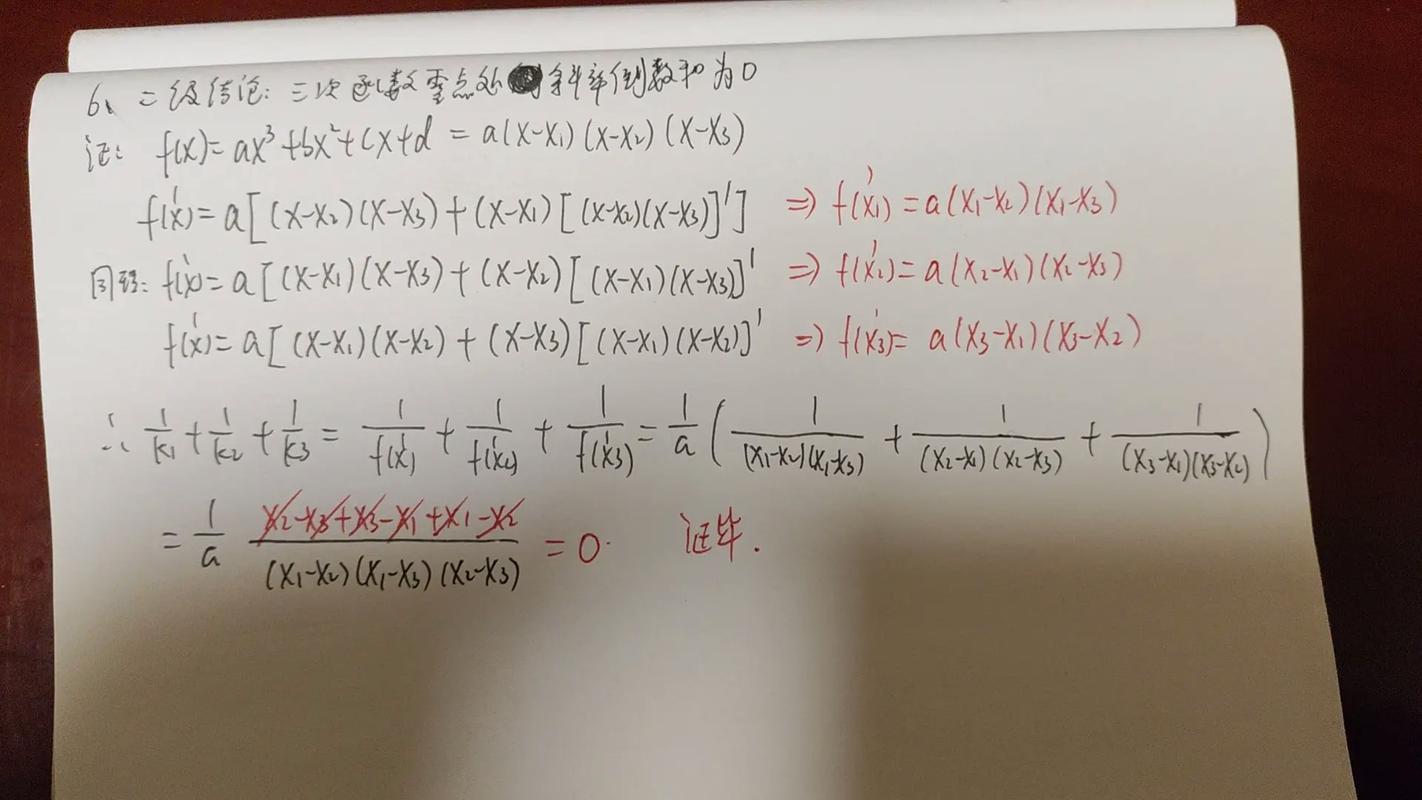 6、二级结论：三次函数零点处斜率倒数和为0
证： f(x)=ax³+bx²+cx+d = a(x-x₁)(x-x₂)(x-x₃)
f'(x)=a[(x-x₂)(x-x₃)+(x-x₁)[(x-x₂)(x-x₃)]'] ⇒ f'(x₁)=a(x₁-x₂)(x₁-x₃)
同理： f'(x)=a[(x-x₁)(x-x₃)+(x-x₂)[(x-x₁)(x-x₃)]' ⇒ f'(x₂)=a(x₂-x₁)(x₂-x₃)
f'(x)=a[(x-x₁)(x-x₂)+(x-x₃)[(x-x₁)(x-x₂)]' ⇒ f'(x₃)= a(x₃-x₁)(x₃-x₂)
∴ 1/k₁+1/k₂+1/k₃ = 1/f'(x₁)+1/f'(x₂)+1/f'(x₃) = 1/a(1/(x₁-x₂)(x₁-x₃)+1/(x₂-x₁)(x₂-x₃)+1/(x₃-x₁)(x₃-x₂))
= 1/a (x₂-x₃+x₃-x₁+x₁-x₂)/(x₁-x₂)(x₁-x₃)(x₂-x₃) =0. 证毕.